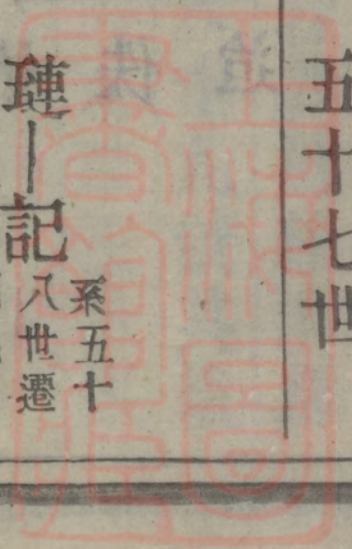 五十七世
璉｜記
系五十
八世遷